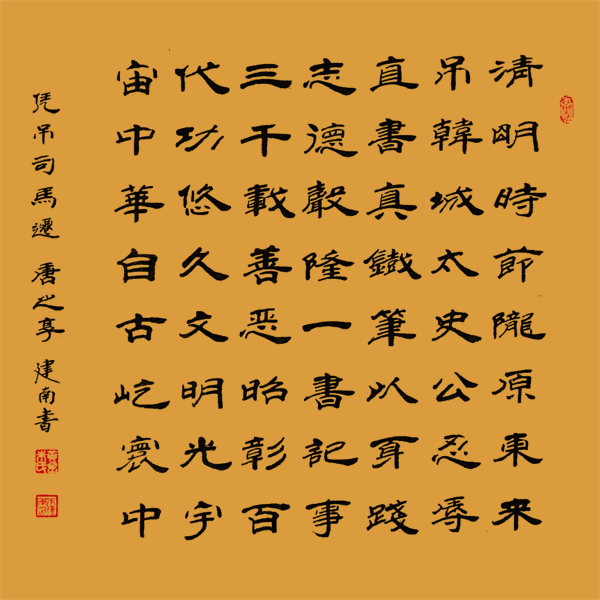 清明時節隴原東来
吊韓城太史公忍辱
直書真鐵筆以身踐
志德聲隆一書記事
三千載善恶昭彰百
代功悠久文明光宇
宙中華自古屹寰中
凭吊司馬遷 唐之享 建南書